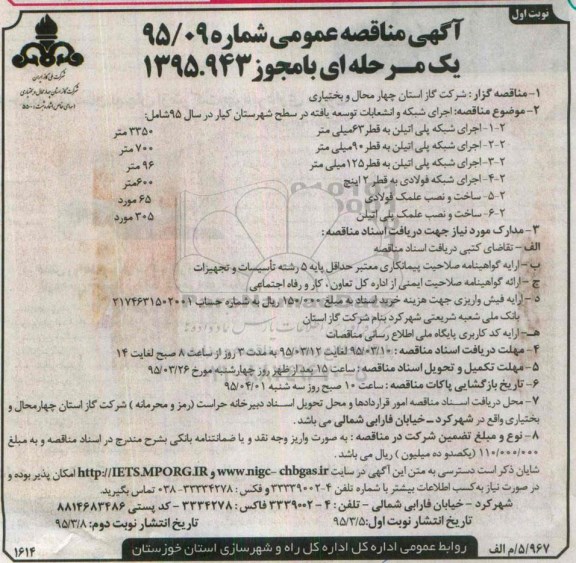 نوبت اول
آگهی مناقصه عمومی شماره ۹۵/۰۹
یک مرحله ای بامجوز ۱۳۹۵.۹۴۳
شرکت ملی گاز ایران
شرکت گاز استان چهارمحال و بختیاری
۱- مناقصه گزار: شرکت گاز استان چهار محال و بختیاری
۲- موضوع مناقصه: اجرای شبکه و انشعابات توسعه یافته در سطح شهرستان کیار در سال ۹۵ شامل:
۲-۱- اجرای شبکه پلی اتیلن به قطر ۶۳ میلی متر ۳۳۵۰ متر
۲-۲- اجرای شبکه پلی اتیلن به قطر ۹۰ میلی متر ۷۰۰ متر
۲-۳- اجرای شبکه پلی اتیلن به قطر ۱۲۵ میلی متر ۹۶ متر
۲-۴- اجرای شبکه فولادی به قطر ۲ اینچ ۶۰۰ متر
۲-۵- ساخت و نصب علمک فولادی ۶۵ مورد
۲-۶- ساخت و نصب علمک پلی اتیلن ۳۰۵ مورد
۳- مدارک مورد نیاز جهت دریافت اسناد مناقصه:
الف- تقاضای کتبی دریافت اسناد مناقصه
ب- ارایه گواهینامه صلاحیت پیمانکاری معتبر حداقل پایه ۵ رشته تأسیسات و تجهیزات
ج- ارائه گواهینامه صلاحیت ایمنی از اداره کل تعاون، کار و رفاه اجتماعی
د- ارایه فیش واریزی جهت هزینه خرید اسناد به مبلغ ۱۵۰/۰۰۰ ریال به شماره حساب ۲۱۷۴۶۳۱۵۰۲۰۰۱
بانک ملی شعبه شریعتی شهرکرد بنام شرکت گاز استان
هـ- ارایه کد کاربری پایگاه ملی اطلاع رسانی مناقصات
۴- مهلت دریافت اسناد مناقصه: ۹۵/۰۳/۱۰ لغایت ۹۵/۰۳/۱۲ به مدت ۳ روز از ساعت ۸ صبح لغایت ۱۴
۵- مهلت تکمیل و تحویل اسناد مناقصه: ساعت ۱۵ بعد از ظهر روز چهارشنبه مورخ ۹۵/۰۳/۲۶
۶- تاریخ بازگشایی پاکات مناقصه: ساعت ۱۰ صبح روز سه شنبه ۹۵/۰۴/۰۱
۷- محل دریافت اسناد مناقصه امور قراردادها و محل تحویل اسناد دبیرخانه حراست (رمز و محرمانه) شرکت گاز استان چهارمحال و
بختیاری واقع در شهرکرد – خیابان فارابی شمالی می باشد.
۸- نوع و مبلغ تضمین شرکت در مناقصه: به صورت واریز وجه نقد و یا ضمانتنامه بانکی بشرح مندرج در اسناد مناقصه و به مبلغ
۱۱۰/۰۰۰/۰۰۰ (یکصدو ده میلیون) ریال می باشد.
شایان ذکر است دسترسی به متن این آگهی در سایت www.nigc-chbgas.ir و http://IETS.MPORG.IR امکان پذیر بوده و
در صورت نیاز به کسب اطلاعات بیشتر با شماره تلفن ۴-۳۳۳۳۹۰۰۲ و فکس: ۳۳۳۳۴۲۷۸-۰۳۸ تماس بگیرید.
شهرکرد - خیابان فارابی شمالی - تلفن: ۴-۳۳۳۳۹۰۰۲ فاکس: ۳۳۳۳۴۲۷۸ - کد پستی ۸۸۱۴۶۸۳۴۸۶
تاریخ انتشار نوبت اول: ۹۵/۳/۵ تاریخ انتشار نوبت دوم: ۹۵/۳/۸
۵/۹۶۷/م الف روابط عمومی اداره کل اداره کل راه و شهرسازی استان خوزستان ۱۶۱۴